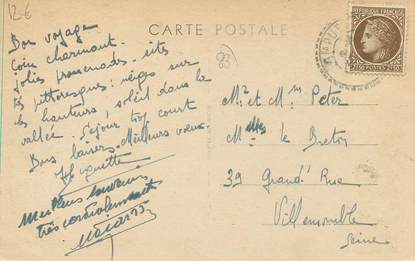 12€
CARTE POSTALE
Bon voyage
Coin charmant.
jolis promenades. sites
très pittoresques; neiges sur
les hauteurs, soleil dans la
vallée. Séjour trop court
Bons baisers. Meilleurs voeux.
Meilleurs souvenirs
très cordialement
83
REPUBLIQUE FRANÇAISE
POSTES
2F50
Mr et Mme Peter
Mmelles le Breton
39 Grand' Rue
Villemomble
Seine